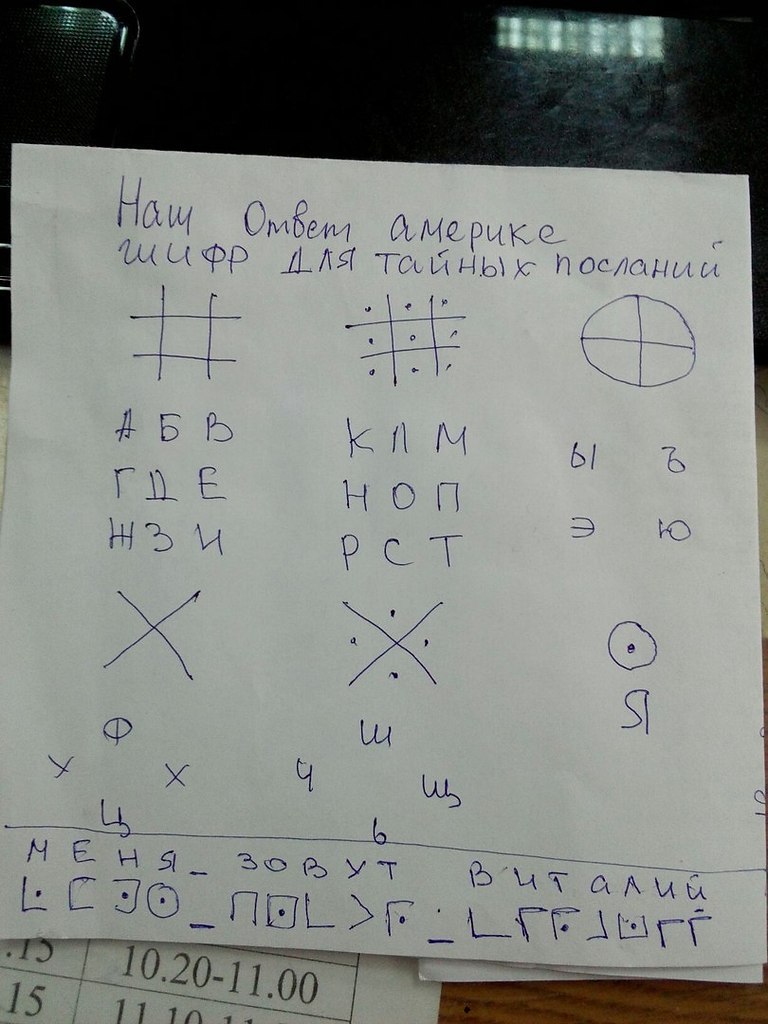 Наш Ответ америке
шифр для тайных посланий
А Б В
Г Д Е
Ж З И
К Л М
Н О П
Р С Т
Ы Ъ
Э Ю
Ф
У Х
Ц
Ш
Ч Щ
Ь
Я
М Е Н Я _ З О В У Т В И Т А Л И Й
.15 10.20-11.00
15